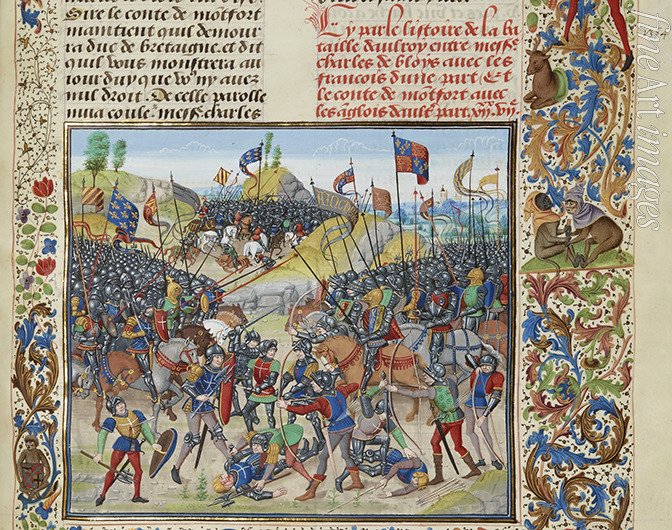 Sire le conte de mõtfort
maintient quil demou
ra duc de bretaigne et dit
quil vous monstrera au
iour duy que vo9 ny auez
nul droit. De celle parolle
mua coule mess. charles
Cy parle listoire de la ba
taille daulroy entre mess.
charles de bloys auec les
francois dune part. Et
le conte de montfort auec
les anglois daultr part. xxvij. vij.
fine art images